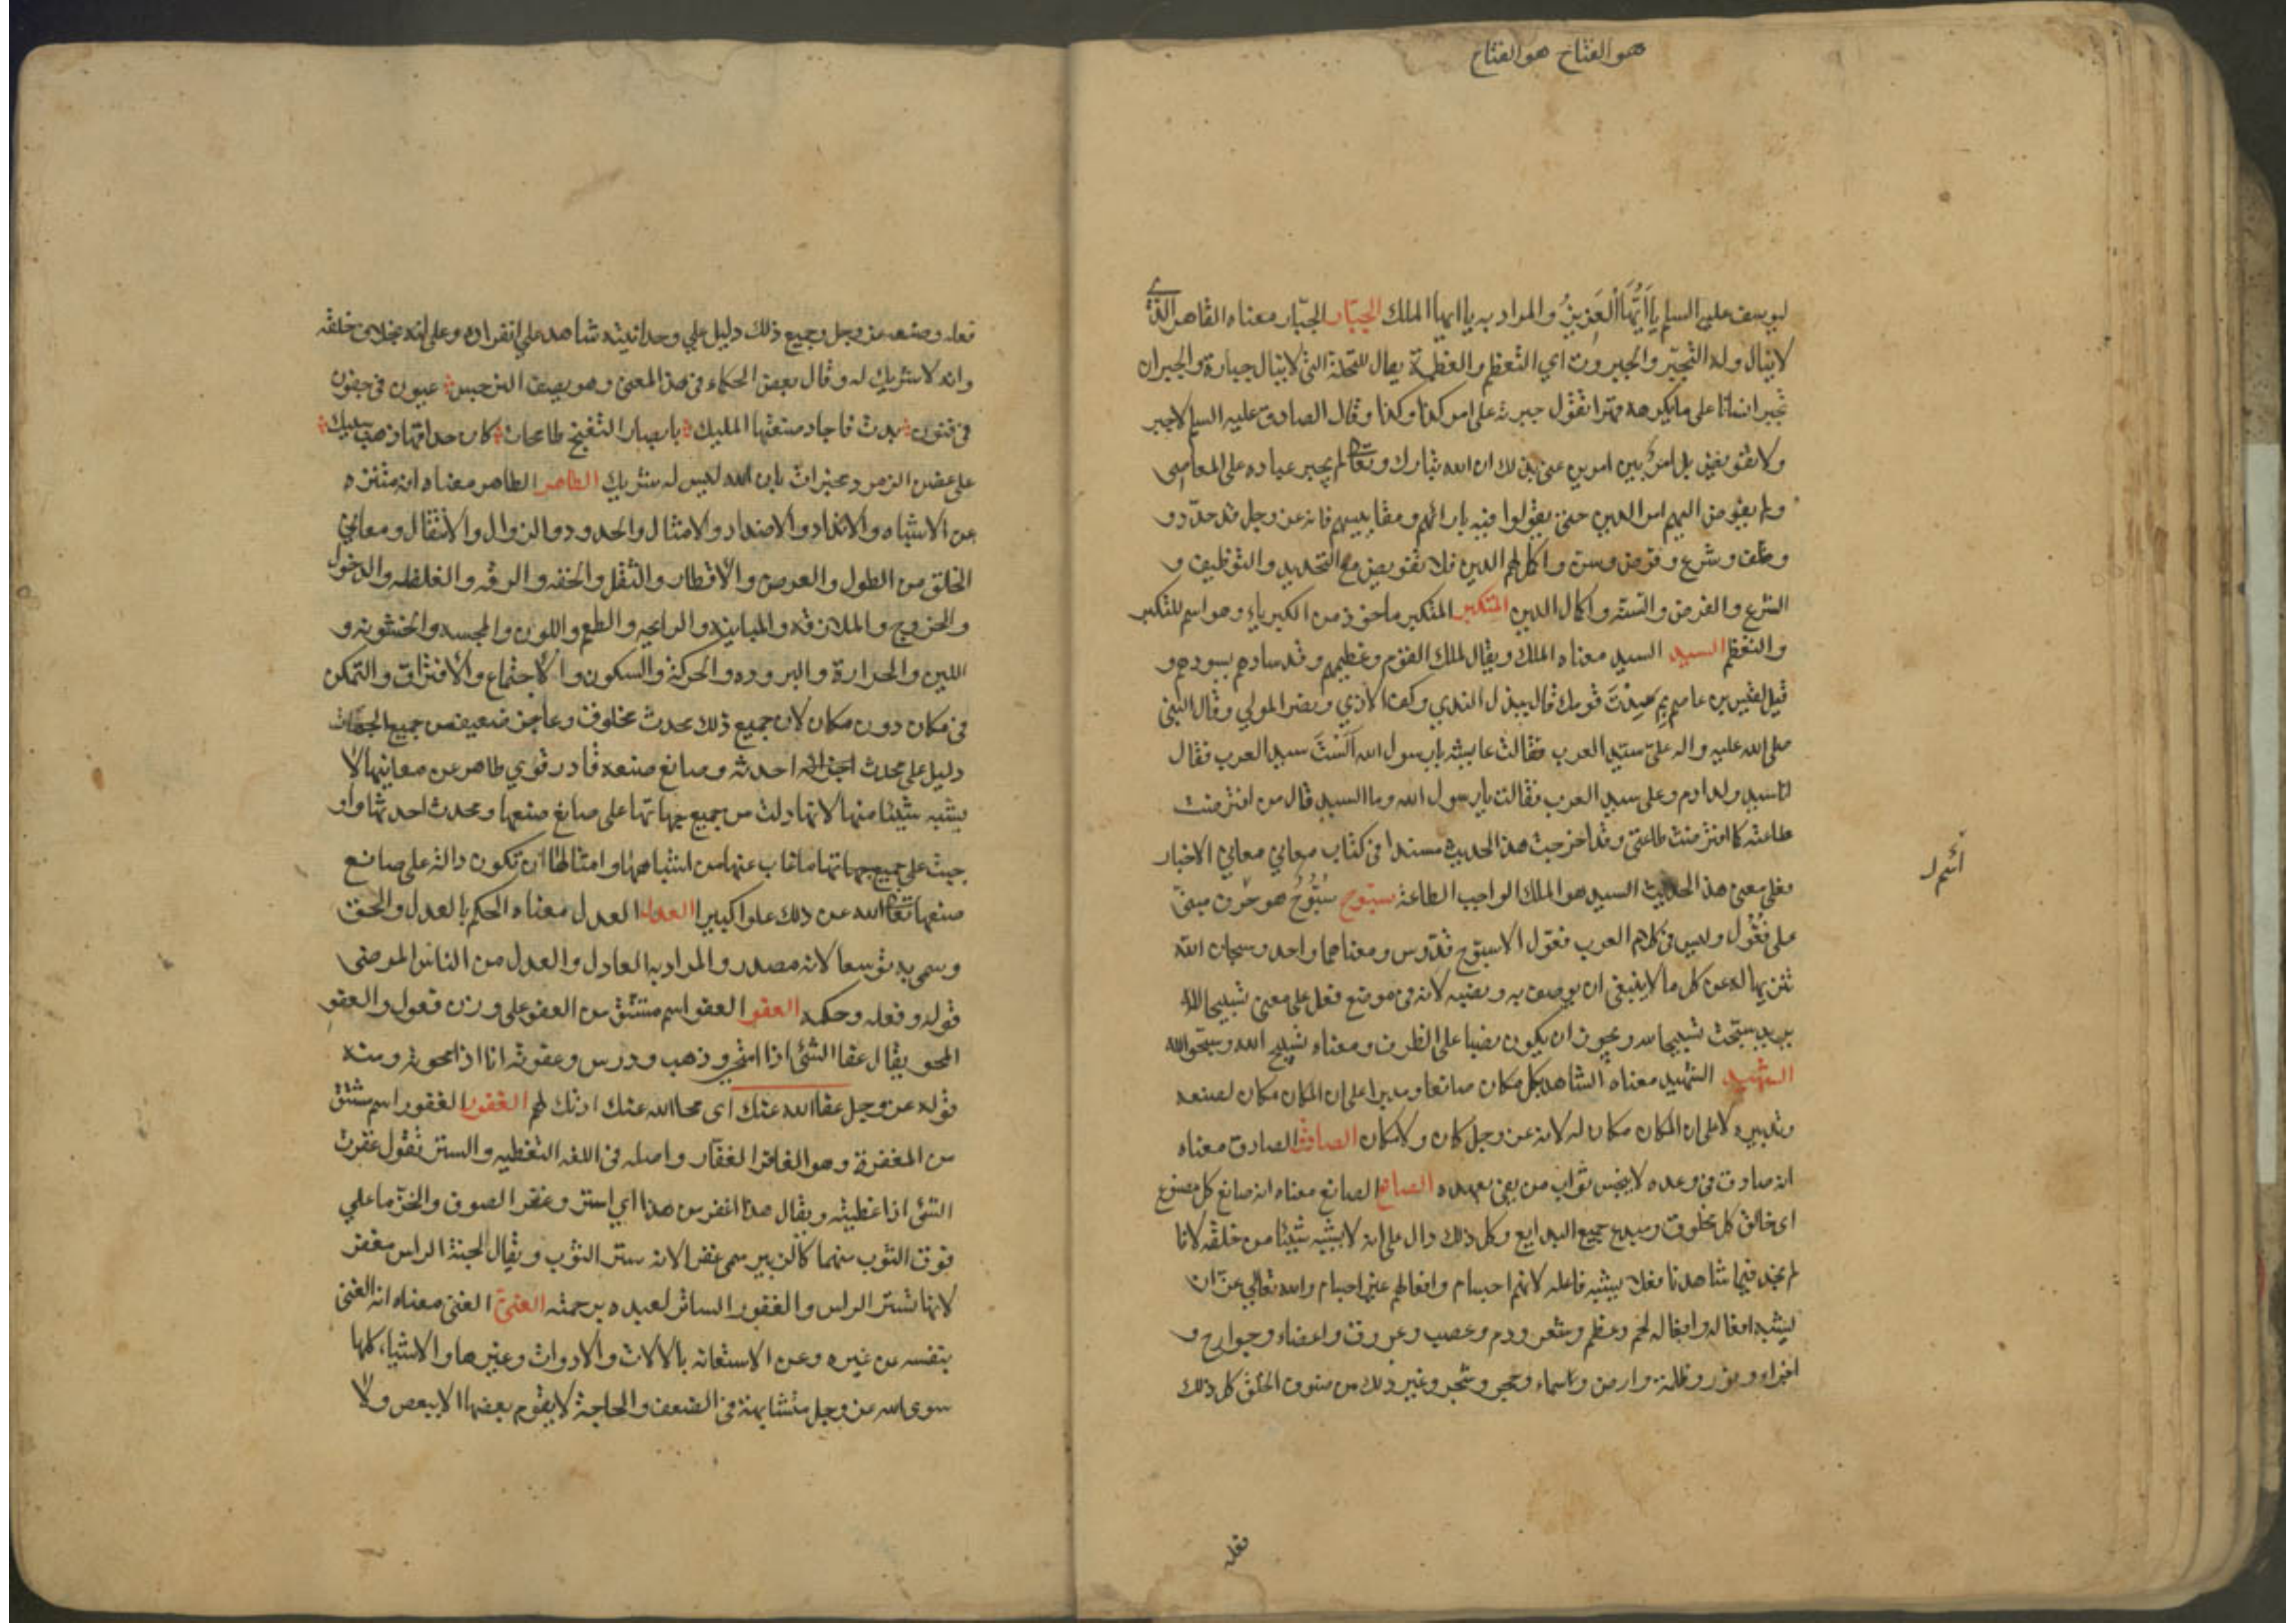 هو الفتاح هو الفتاح
ليوسف عليه السلم يَا أَيُّهَا الْعَزِيزُ والمراد به يا ايها الملك الجبّار الجبّار معناه القاهر الذي
لاينال وله التجبّر والجبروت اي التعظم والعظمة يقال للنخلة التي لاينال جبارة والجبران
تجبر انسانا على مايكرهه قهرا تقول جبرته على امر كذا وكذا وقال الصادق عليه السلم لاجبر
ولاتفويض بل امرٌ بين امرين عنى بذلك ان الله تبارك وتعالى لم يجبر عباده على المعاصي
ولم يفوض اليهم امر الدين حتى يقولوا فيه بارائهم ومقاييسهم فانه عز وجل قد حدّد و
وظف وشرع وفرض وسن واكمل لهم الدين فلا تفويض مع التحديد والتوظيف و
الشرع والفرض والسنّة واكمال الدين المتكبر المتكبر ماخوذ من الكبرياء وهو اسم للتكبر
والتعظم السيد السيد معناه الملك ويقال لملك القوم وعظيمهم وقد سادهم يسودهم و
قيل لقيس بن عاصم بم سدت قومك قال ببذل الندي وكف الاذي ونصر المولي وقال النبي
صلى الله عليه واله على سيّد العرب فقالت عايشه يارسول الله اَلَسْتَ سيد العرب فقال
انا سيد ولد ادم وعلى سيد العرب فقالت يارسول الله وما السيد قال من افترضت
طاعته كما افترضت طاعتي وقد اخرجت هذا الحديث مسندا في كتاب معاني معاني الاخبار
فعلى معنى هذا الحديث السيد هو الملك الواجب الطاعة سبّوح سُبُّوحٌ هو حرف مبنى
على فُعُّول وليس في كلام العرب فعّول الا سبّوح قدّوس ومعناهما واحد وسبحان الله
تنزيها له عن كل ما لاينبغى ان يوصف به ونصبه لانه في موضع فعل على معنى تسبيحا لله
يريد سبّحت تسبيحا لله ويجوز ان يكون نصبا على الظرف ومعناه نسبح الله وسبّحوا لله
الشهيد الشهيد معناه الشاهد بكل مكان صانعا ومدبرا على ان المكان مكان لصنعه
وتدبيره لا على ان المكان مكان له لانه عز وجل كان ولامكان الصادق الصادق معناه
انه صادق في وعده لايبخس ثواب من يفى بعهده الصانع الصانع معناه انه صانع كل مصنوع
اى خالق كل مخلوق ومبدع جميع البدايع وكل ذلك دال على انه لايشبه شيئا من خلقه لانا
لم نجد فيما شاهدنا فعلا يشبه فاعله لانهم اجسام وافعالهم غير اجسام والله تعالي عن ان
يشبه افعاله وافعاله لحم وعظم وشعر ودم وعصب وعروق واعضاء وجوارح و
اجزاء ونور وظلمة وارض وسماء وحجر وشجر وغير ذلك من صنوف الخلق كل ذلك
فعله
فعله وصنعه عز وجل وجميع ذلك دليل علي وحدانيته شاهد علي انفراده وعلى انه بخلاف خلقه
وانه لاشريك له وقال بعض الحكماء في هذا المعنى وهو يصف النرجس عيون في جفون
في فنون بدت فاجاد صنعتها المليك بابصار التغنج طامحات كان حداقها ذهب سبيك
على غصن الزمرد مخبرات بان الله ليس له شريك الطاهر الطاهر معناه انه متنزه
عن الاشباه والانداد والاضداد والامثال والحدود والزوال والانتقال ومعاني
الخلق من الطول والعرض والاقطار والثقل والخفه والرقه والغلظه والدخول
والخروج والملازقه والمباينه والرايحه والطعم واللون والمجسه والخشونه و
اللين والحرارة والبروده والحركة والسكون والاجتماع والافتراق والتمكن
في مكان دون مكان لان جميع ذلك محدث مخلوق وعاجز ضعيف من جميع الجهات
دليل على محدث احدثه وصانع صنعه قادر قوي طاهر عن معانيها لا
يشبه شيئا منها لانها دلت من جميع جهاتها على صانع صنعها ومحدث احدثها واو
جبت على جميع ماغاب عنها من اشباهها وامثالها ان تكون دالة على صانع
صنعها تعالى الله عن ذلك علوا كبيرا العدل العدل معناه الحكم بالعدل والحق
وسمى به توسعا لانه مصدر والمراد به العادل والعدل من الناس المرضى
قوله وفعله وحكمه العفو العفو اسم مشتق من العفو على وزن فعول والعفو
المحو يقال عفا الشئ اذا امتحى وذهب ودرس وعفوته انا اذا محوته ومنه
قوله عز وجل عفا الله عنك اى محا الله عنك اذنك لهم الغفور الغفور اسم مشتق
من المغفرة وهو الغافر الغفّار واصله في اللغه التغطيه والستر تقول غفرت
الشئ اذا غطيته ويقال هذا اغفر من هذا اي استر وغفر الصوف والخزّ ماعلي
فوق الثوب منهما كالزيبر سمى غفرا لانه ستر الثوب ويقال لجنة الراس مغفر
لانها تستر الراس والغفور الساتر لعبده برحمته الغنىّ الغنى معناه انه الغنى
بنفسه عن غيره وعن الاستعانه بالالات والادوات وغيرها والاشياء كلها
سوى الله عز وجل متشابهة في الضعف والحاجة لايقوم بعضها الا ببعض ولا